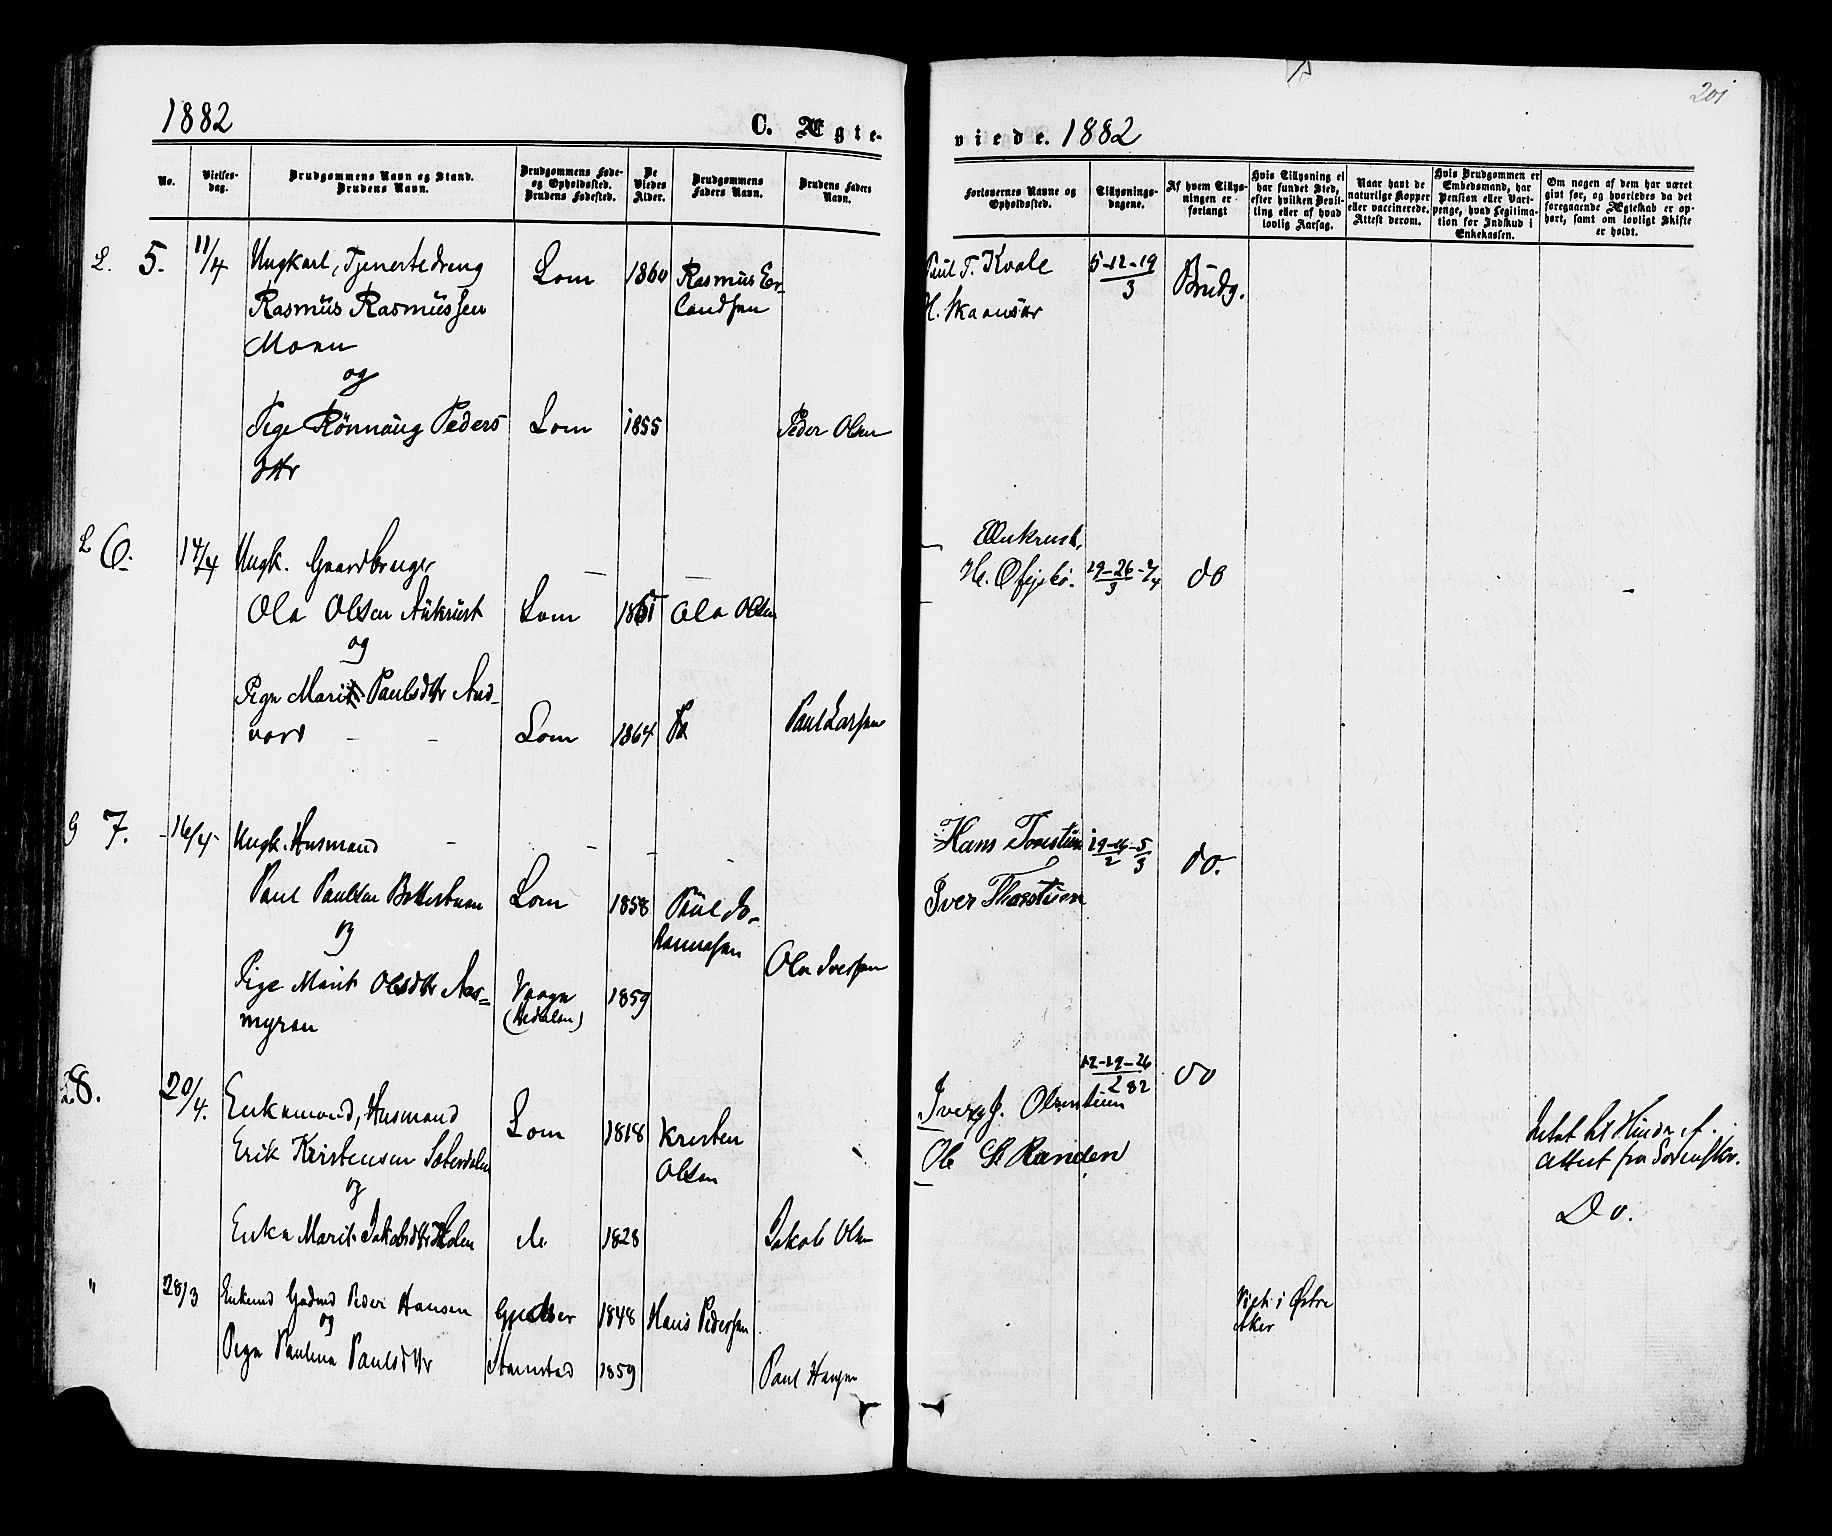 201
1882
C. Ægte-
viede. 1882
No.
Vielses-
dag.
Brudgommens Navn og Stand.
Brudens Navn.
Brudgommens Føde-
og Opholdssted.
Brudens Fødested.
De
Viedes
Alder.
Brudgommens
Faders Navn.
Brudens Faders
Navn.
Forlovernes Navne og
Opholdssted.
Tillysnings-
dagene.
Af hvem Tillys-
ningen er
forlangt
Hvis Tillysning ei
har fundet Sted,
efter hvilken Bevil-
ling eller af hvad
lovlig Aarsag.
Naar havt de
naturlige Kopper
eller vaccinerede.
Attest derom.
Hvis Brudgommen er
Embedsmand, har
Pension eller Vart-
penge, hvad Legitima-
tion for Indskud i
Enkekassen.
Om nogen af dem har været
givt før, og hvorledes da det
foregaaende Ægteskab er op-
hørt, samt om lovligt Skifte
er holdt.
L. 5. 11/4 Ungkarl, Tjenestedreng Lom 1860 Rasmus Er- Paul T. Kvale 5-12-19/3 Brudg.
Rasmus Rasmussen landsen H. Skaansar
Moen
og
Pige Rönnaug Peders Lom 1855 Peder Olsen
dttr
L 6. 14/4 Ungk. Gaardbruger Aukrust,
Ola Olsen Aukrust Lom Ola Olsen 19-26/3-2/4 do
og
Pige Marit Paulsdttr And-
vord Lom 1864 Paul Larsen
G 7. 16/4 Ungk. Husmand Hans 19-26/2-5/3 do.
Paul Paulsen Lom 1858 Paul Jo- Iver
og hannesen
Ola Iversen
Pige Marit Olsdttr Aas- Vaage 1859
myren (Hedalen)
8. 20/4. Enkemand, Husmand Lom 1818 Kristen Iver J. 12-19-26/2 82 do
Erik Kristensen Olsen Ole Randen
Attest fra Sorenskr.
og
Enke Marit Jakobsdttr Holen do 1828 Jakob Olsen Do.
" 28/3 Enkemd Gaardmd Peder Hansen 1848 Hans Pedersen Viet i Østre
og Aker
Pige Pauline Paulsdttr 1859 Paul Hansen